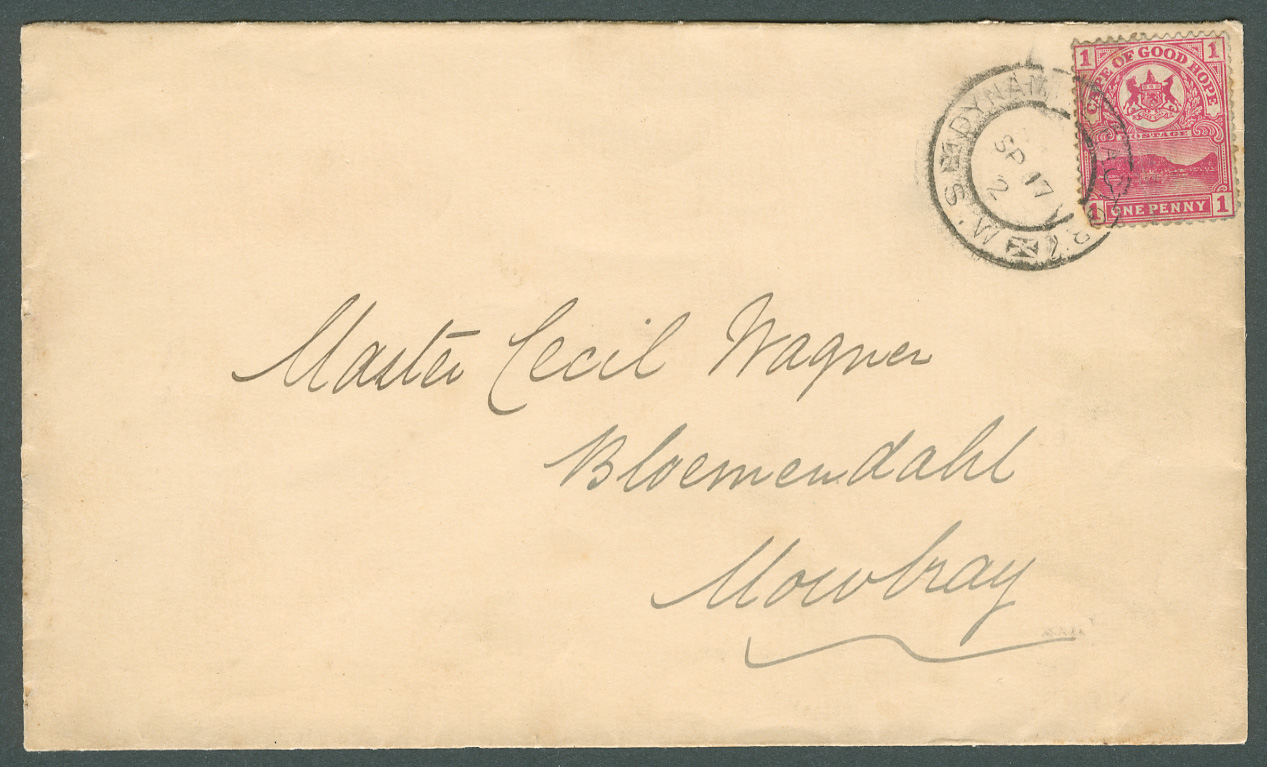 1 CAPE OF GOOD HOPE 1
POSTAGE
1 ONE PENNY 1
SP 17
2
Master Cecil Wagner
Bloemendahl
Mowbray